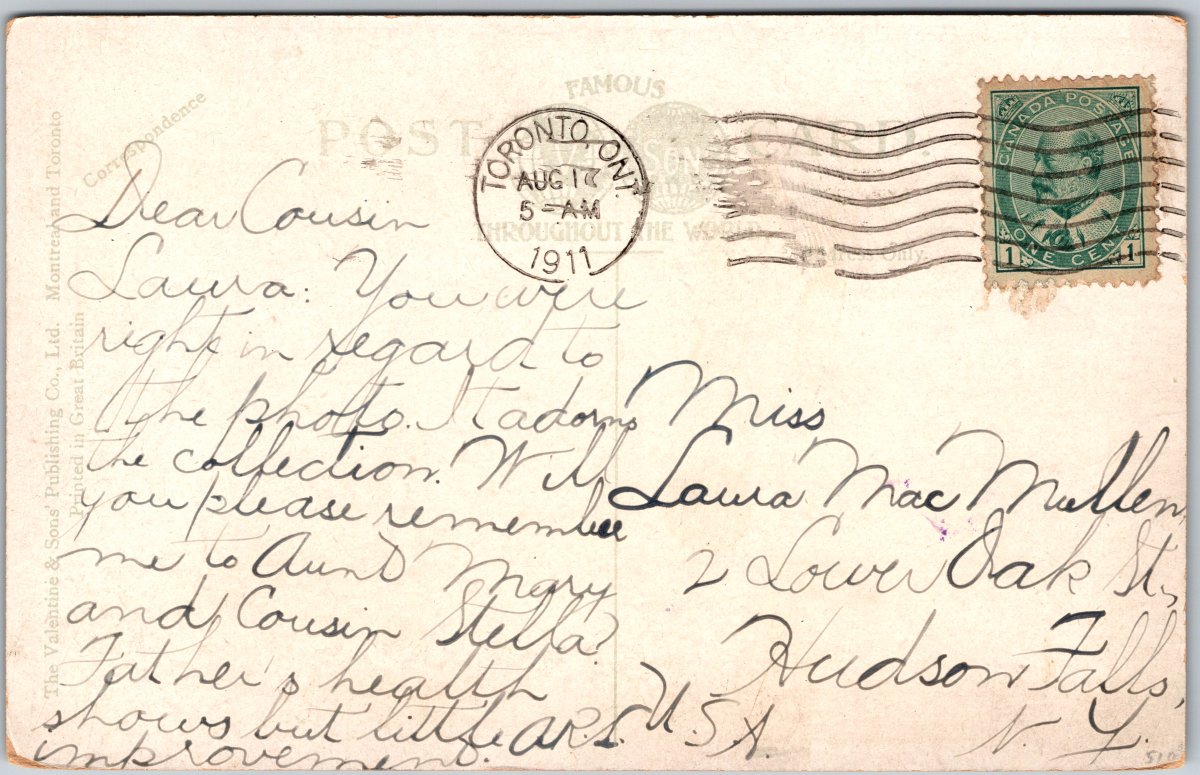 FAMOUS
POST CARD.
SONS
THROUGHOUT THE WORLD
Correspondence
Only.
TORONTO, ONT.
AUG 17
5 - AM
1911
CANADA POSTAGE
1 ONE CENT 1
The Valentine & Sons' Publishing Co., Ltd. Montreal and Toronto
Printed in Great Britain
Dear Cousin
Laura: You were
right in regard to
the photo. It adorns
the collection. Will
you please remember
me to Aunt Mary
and Cousin Stella?
Father's health
shows but little
improvement. A.R.S.
Miss
Laura Mac Mullen,
2 Lower Oak St.,
Hudson Falls,
N. Y.
U.S.A.